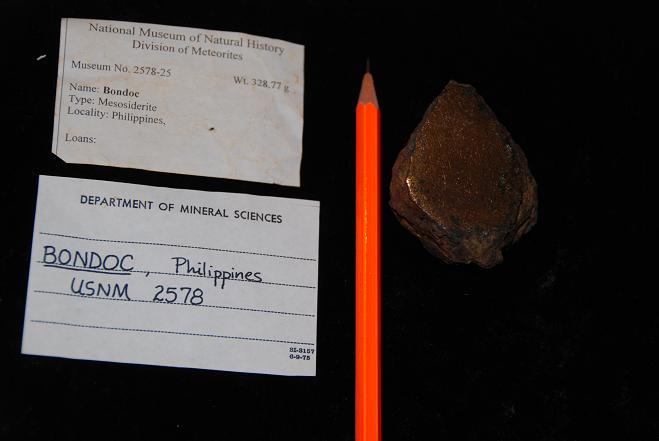 National Museum of Natural History
Division of Meteorites
Museum No. 2578-25
Wt. 328.77 g
Name: Bondoc
Type: Mesosiderite
Locality: Philippines,
Loans:
DEPARTMENT OF MINERAL SCIENCES
BONDOC, Philippines
USNM 2578
SI-3157
6-9-75